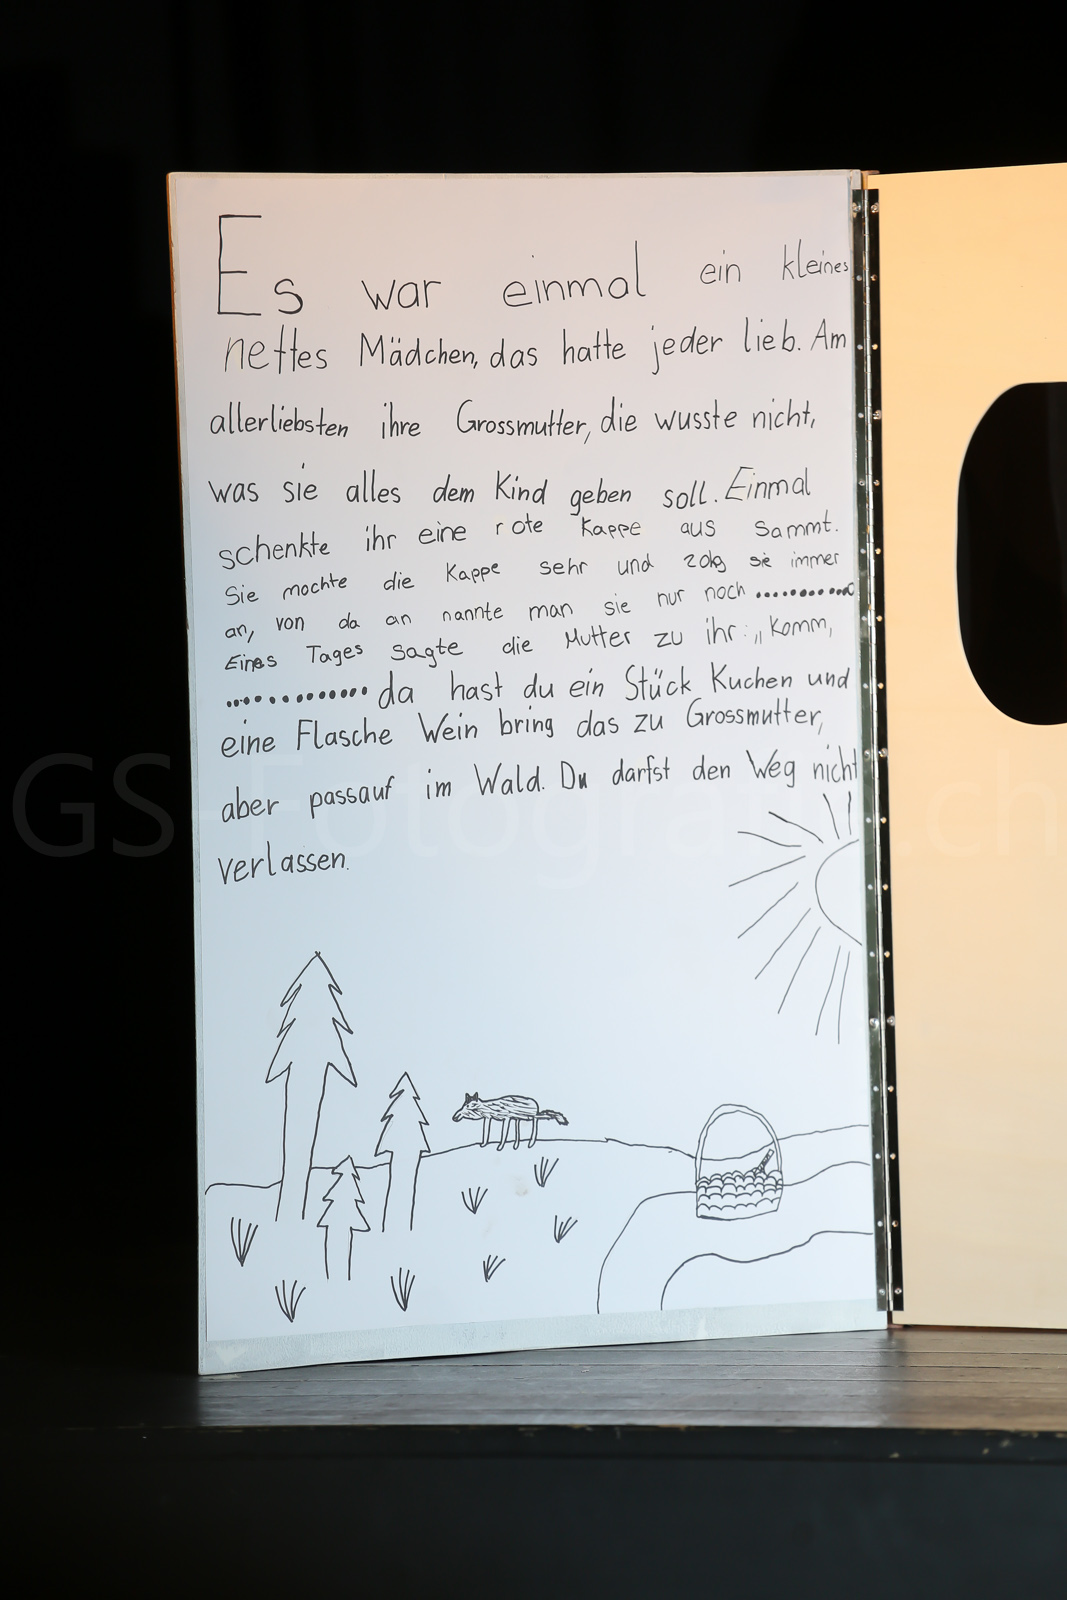 Es war einmal ein kleines
nettes Mädchen, das hatte jeder lieb. Am
allerliebsten ihre Grossmutter, die wusste nicht,
was sie alles dem Kind geben soll. Einmal
schenkte ihr eine rote Kappe aus Sammt.
Sie mochte die Kappe sehr und zog sie immer
an, von da an nannte man sie nur noch ...........
Eines Tages sagte die Mutter zu ihr: „Komm,
............. da hast du ein Stück Kuchen und
eine Flasche Wein bring das zu Grossmutter,
aber passauf im Wald. Du darfst den Weg nicht
verlassen.
GS-Fotografie.ch